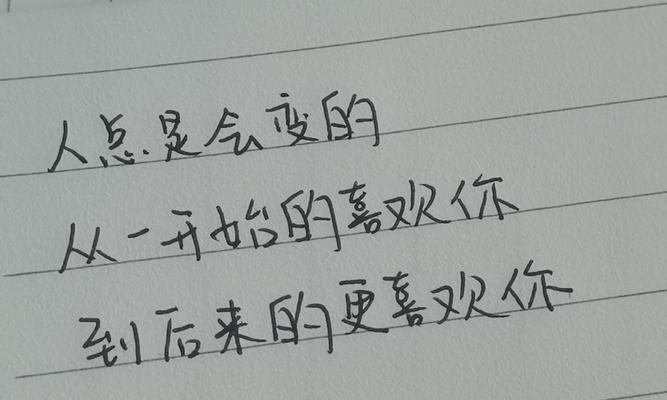 人总是会变的
从一开始的喜欢你
到后来的更喜欢你